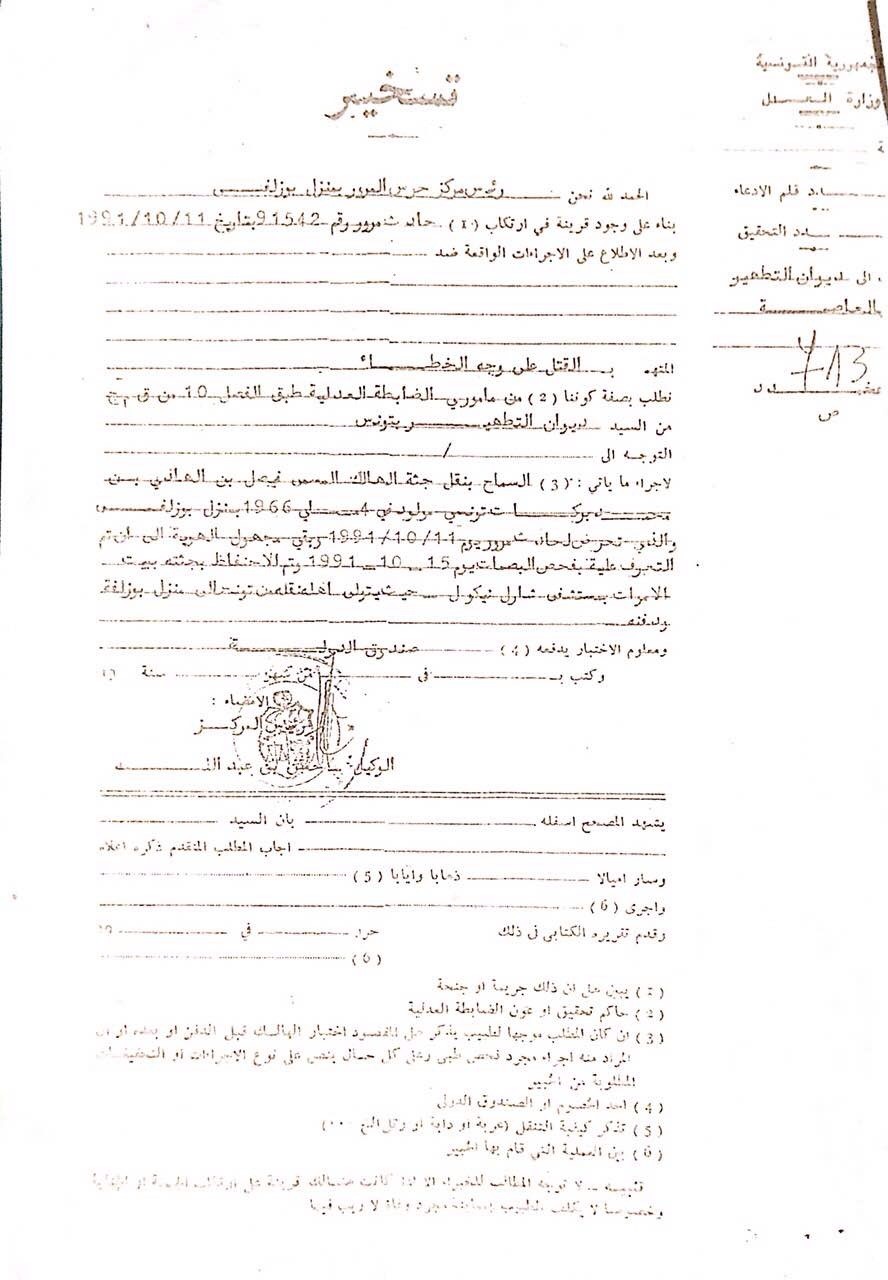 الجمهورية التونسية
وزارة العدل
عدد قلم الادعاء
عدد التحقيق
الى ديوان التطهير
بالعاصمة
713
تسخير
الحمد لله نحن رئيس مركز حرس المرور بمنزل بوزلفى
بناء على وجود قرينة في ارتكاب (1) حادث مرور رقم 91542 بتاريخ 1991/10/11
وبعد الاطلاع على الاجراءات الواقعة ضد
المتهم بـ القتل على وجه الخطاء
نطلب بصفة كوننا (2) من مأموري الضابطة العدلية طبق الفصل 10 من ق م ج
من السيد ديوان التطهير بتونس
التوجه الى /
لاجراء ما يأتي : (3) السماح بنقل جثة الهالك المسمى فيصل بن الهادي بن
بركات تونسي مولود في 4 1966 بمنزل بوزلفى
والذي تعرض لحادث مرور يوم 1991/10/11 وبقي مجهول الهوية الى ان تم
التعرف عليه بفحص البصمات يوم 15 _ 10 _ 1991 وتم الاحتفاظ بجثته ببيت
الاموات بمستشفى شارل نيكول حيث يتولى اهله نقله من تونس الى منزل بوزلفة
ودفنه
ومعلوم الاختبار يدفعه (4) صندوق الدولة
وكتب بـ في من شهر سنة 19
الامضاء :
رئيس المركز
الوكيل
يشهد المصحح اسفله بان السيد
اجاب المطلب المتقدم ذكره اعلاه
وسار اميالا ذهابا وايابا (5)
واجرى (6)
وقدم تقريره الكتابي في ذلك حرر في 19
(6)
(1) يبين هل ان ذلك جريمة او جنحة
(2) حاكم تحقيق او عون الضابطة العدلية
(3) ان كان المطلب موجها لطبيب يذكر هل المقصود اختبار الهالك قبل الدفن او بعده او ان
المراد منه اجراء مجرد فحص طبي وعلى كل حال ينص على نوع الاجراءات او التحقيقات
المطلوبة من الخبير
(4) احد الخصوم او الصندوق الدولي
(5) تذكر كيفية التنقل (عربة او دابة او رتل الخ ...)
(6) بين العملية التي قام بها الخبير
تنبيه _ لا توجه المطالب للخبراء الا اذا كانت هنالك قرينة على ارتكاب الجنحة او الجناية
وخصوصا لا يكلف الطبيب بمعاينة مجرد وفاة لا ريب فيها